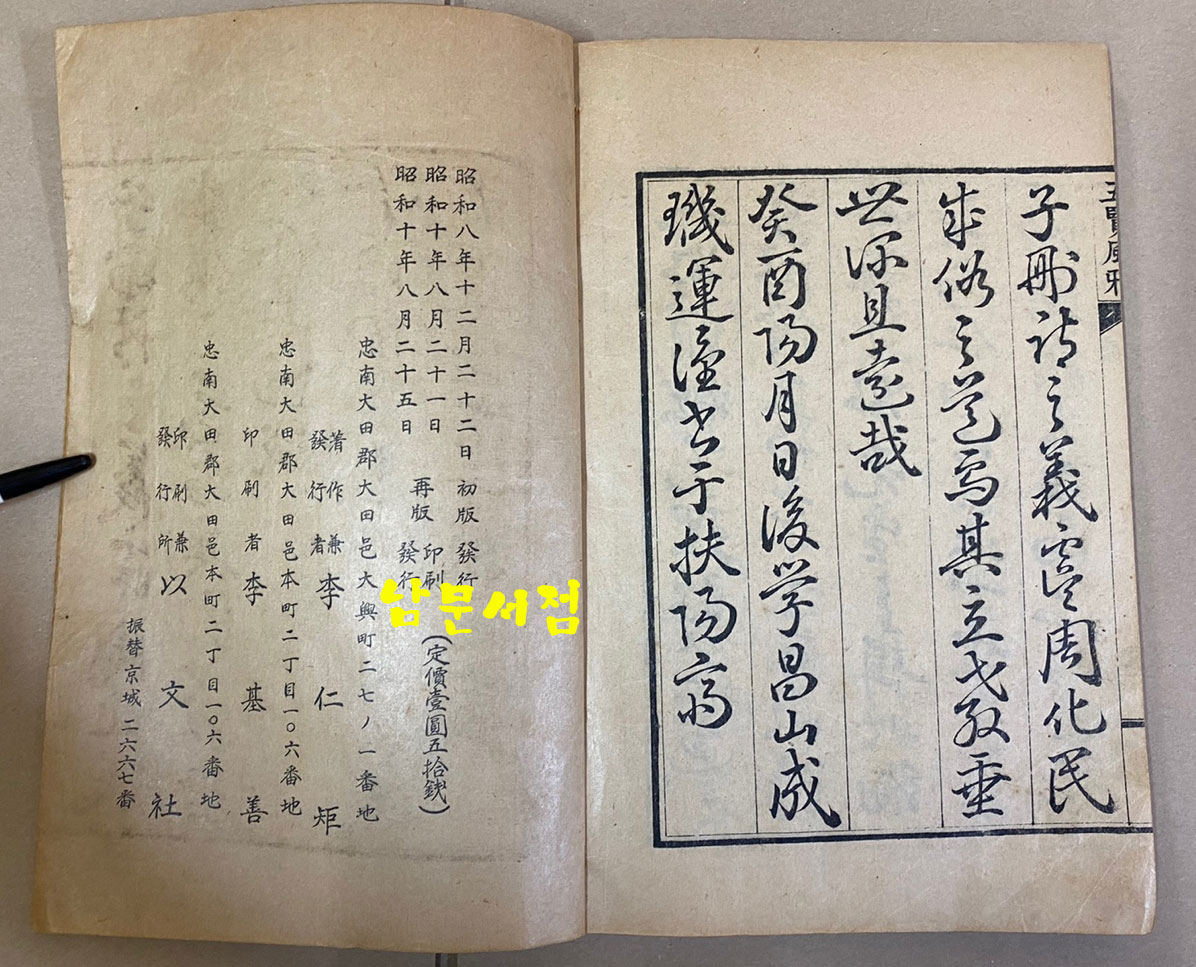 五賢風雅
子刪詩之義虞周化民
成俗之道焉其立教垂
世深且遠哉
癸酉陽月日後學昌山成
璣運謹書于扶陽齋
昭和八年十二月二十二日 初版 發行
昭和十年八月二十一日 再版 印刷
昭和十年八月二十五日 發行
(定價壹圓五拾錢)
忠南大田郡大田邑大興町二七ノ一番地
著作兼發行者 李仁矩
忠南大田郡大田邑本町二丁目一〇六番地
印刷者 李基善
忠南大田郡大田邑本町二丁目一〇六番地
印刷兼發行所 以文社
振替京城二六六七番
남문서점